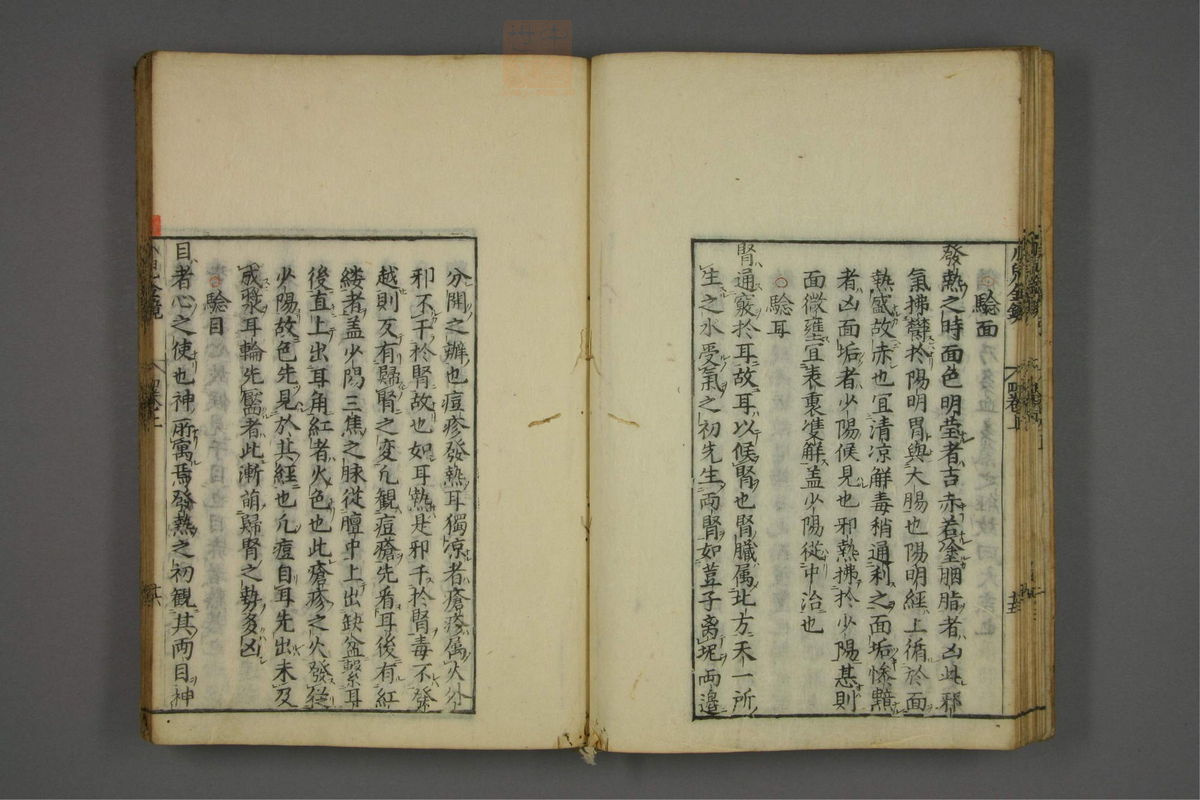 驗面
發熱之時面色明莹者吉赤若塗胭脂者凶此邪
氣拂欝於陽明胃與大腸也陽明經上循於面
熱盛故赤也宜清凉解毒稍通利之面垢慘黯
者凶面垢者少陽候見也邪熱拂於少陽甚則
面微壅宜表裏雙解盖少陽從中治也
○驗耳
腎通竅於耳故耳以候腎也腎臟属北方天一所
生之水受氣之初先生两腎如荳子离坭两邉
分開之辦也痘疹發熱耳獨凉者瘡疹属火外
邪不干於腎故也如耳熱是邪干於腎毒不發
越則反有歸腎之変凢観痘瘡先看耳後有紅
縷者盖少陽三焦之脉從膻中上出缺盆繫耳
後直上出耳角紅者火色也此瘡疹之火發從
少陽故色先見於其經也凢痘自耳先出未及
成漿耳輪先靨者此漸萌歸腎之勢多凶
驗目
目者心之使也神所寓焉發熱之初観其两目神